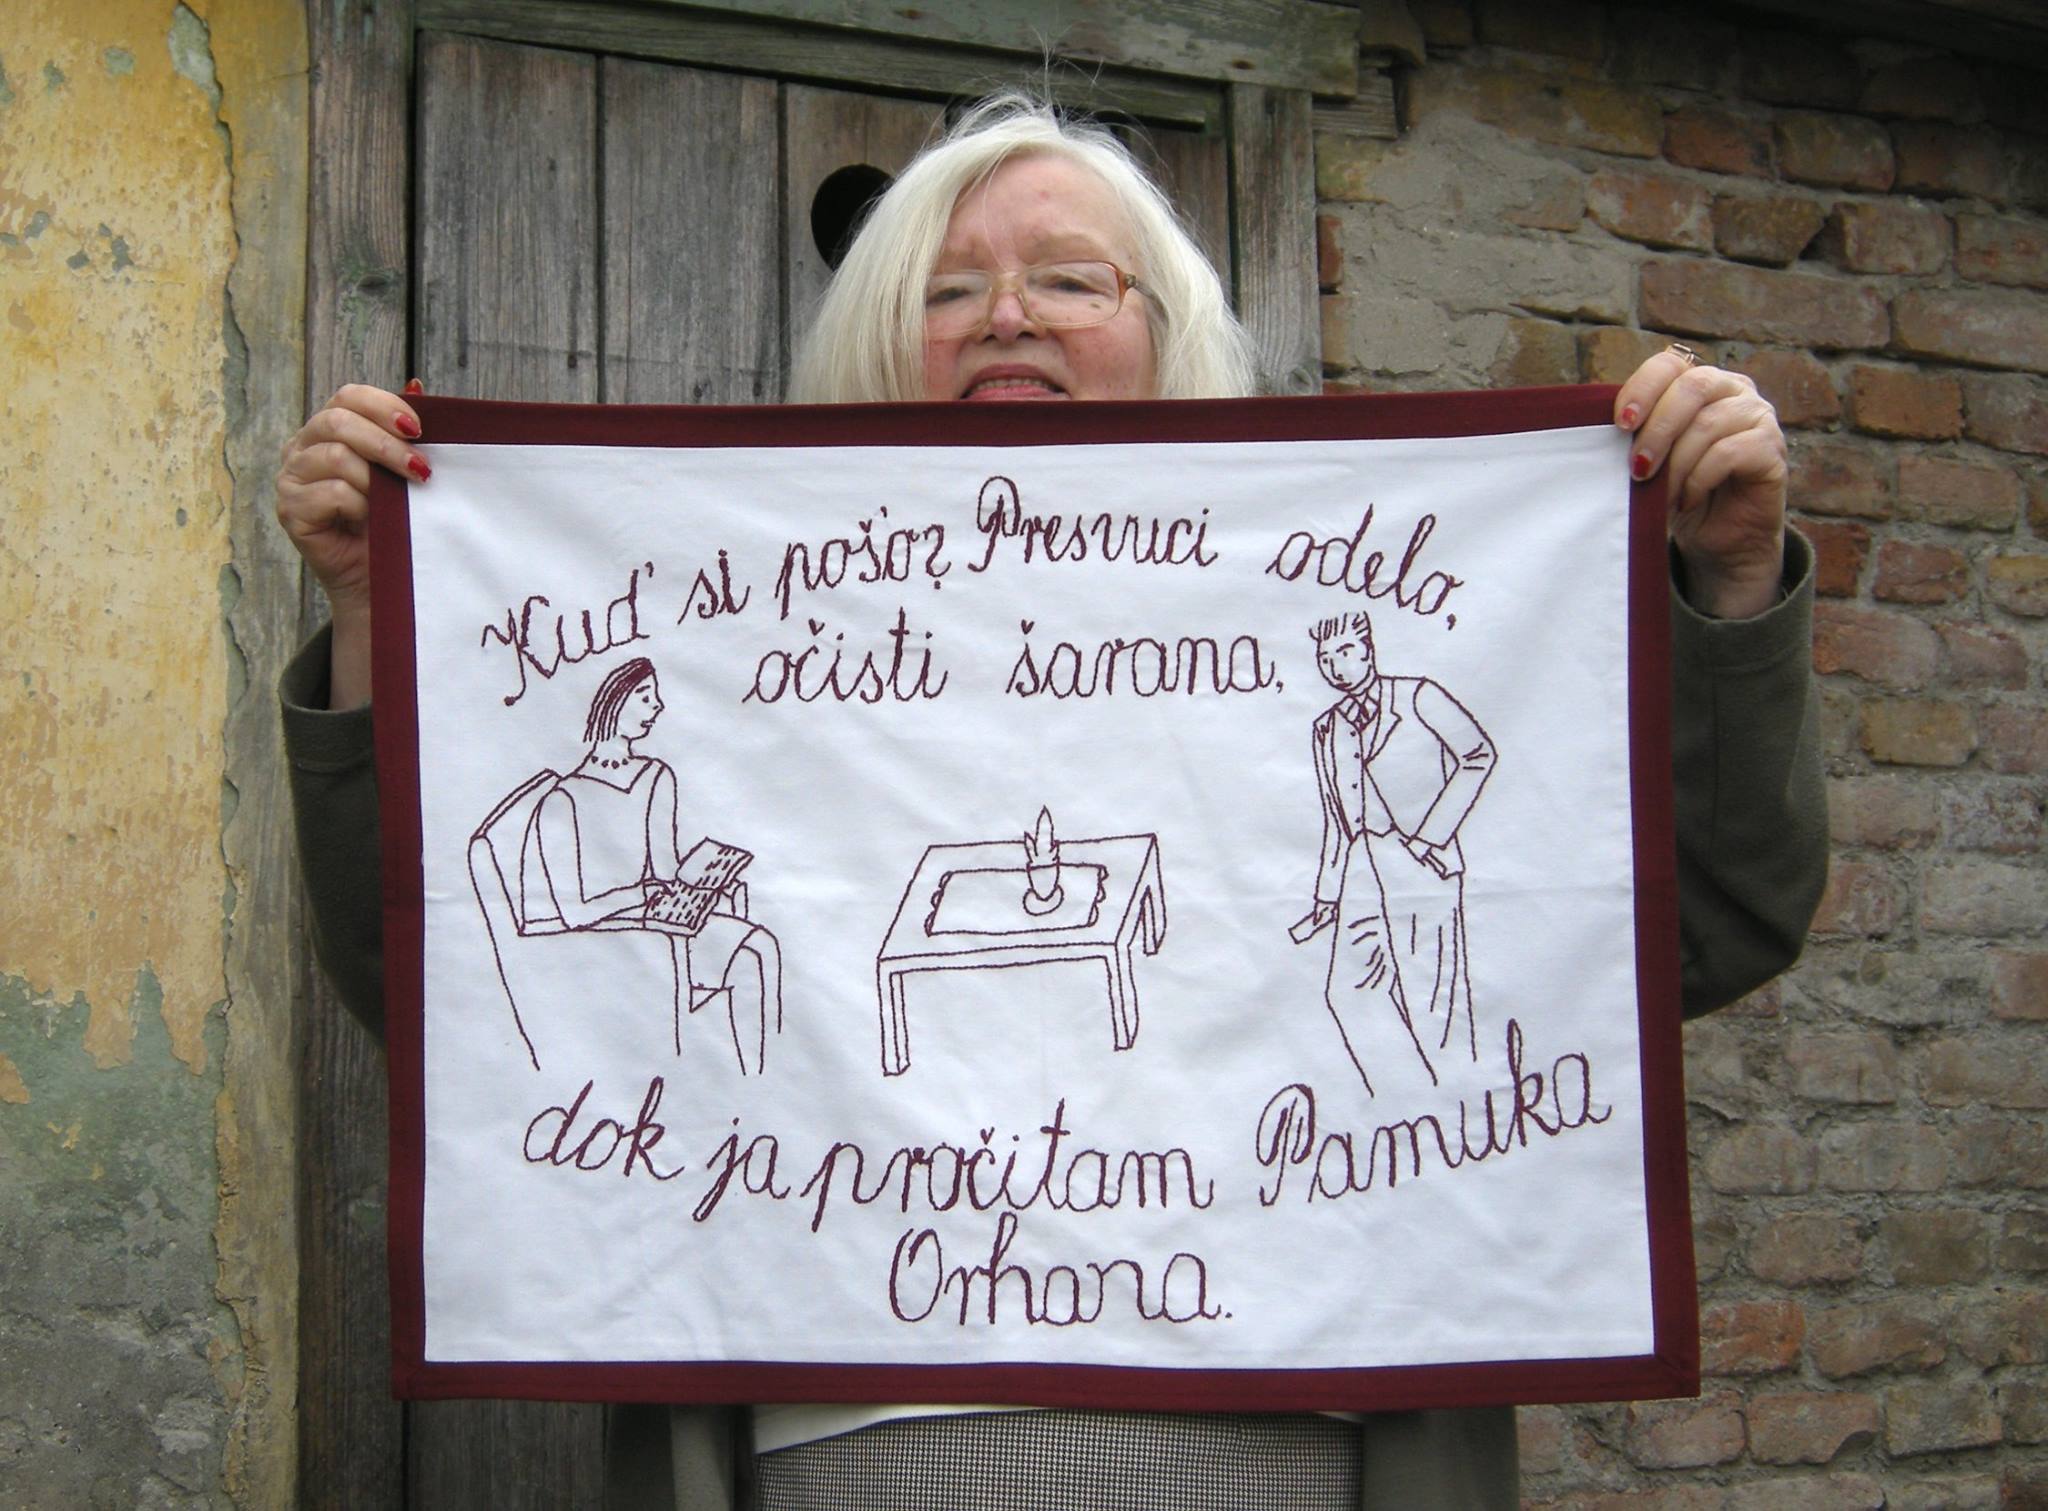 Kud' si poš'o? Presvuci odelo,
očisti šarana,
dok ja pročitam Pamuka
Orhana.